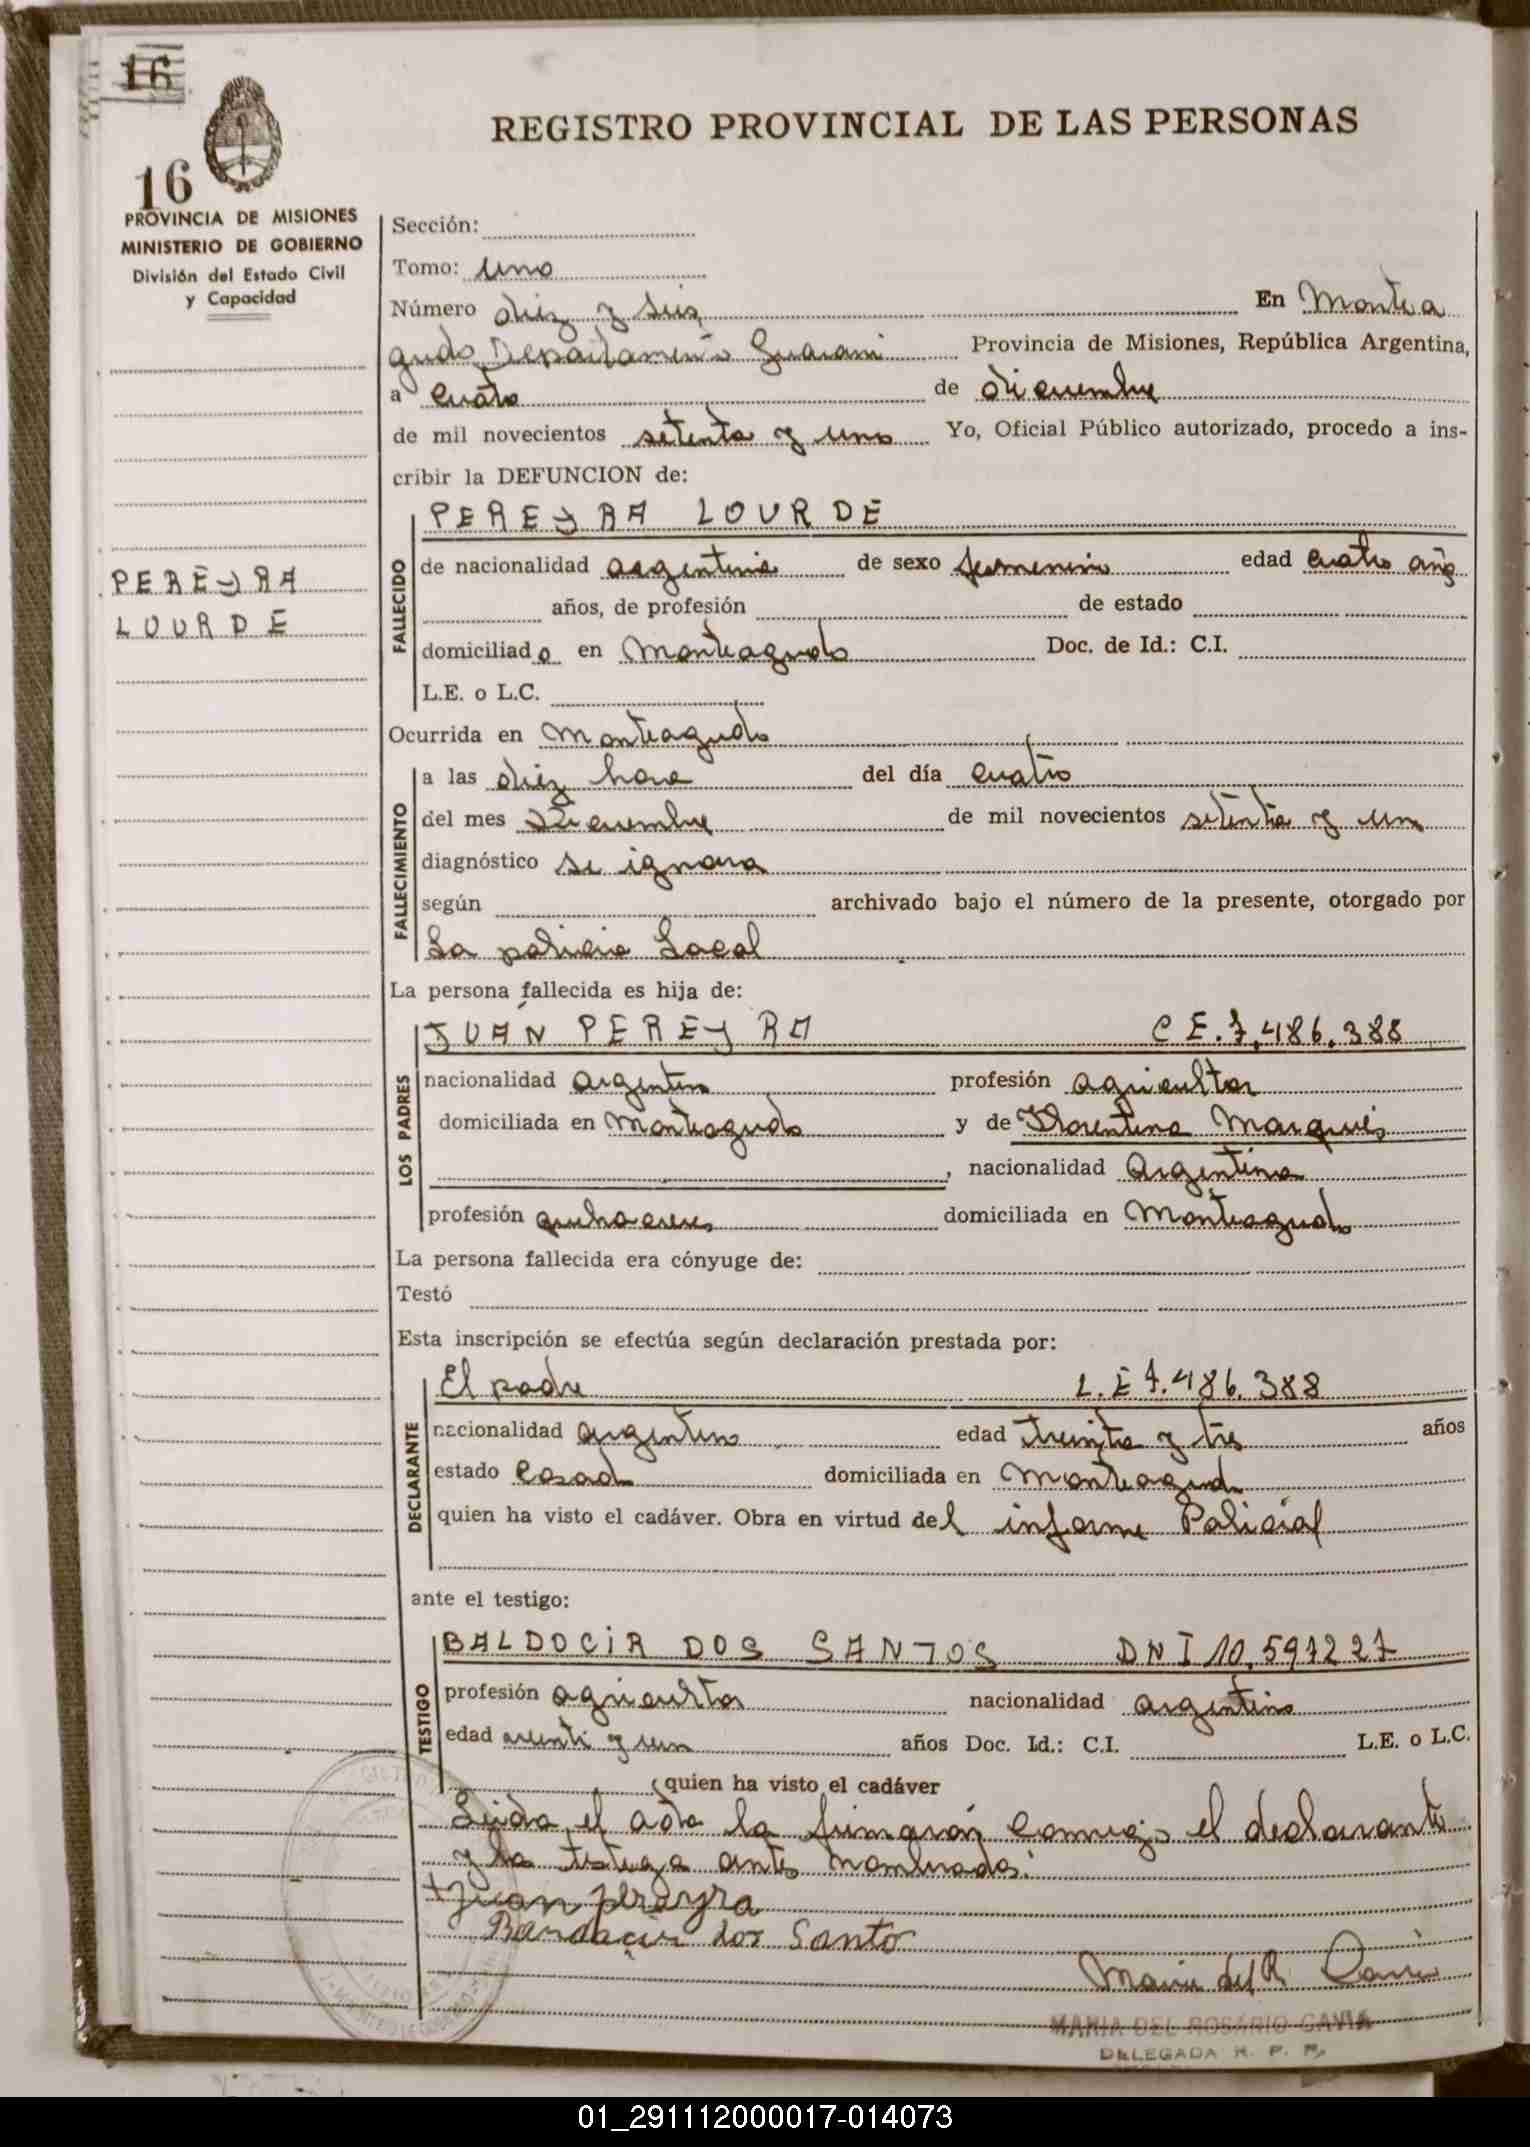 16
16
PROVINCIA DE MISIONES
MINISTERIO DE GOBIERNO
División del Estado Civil
y Capacidad
REGISTRO PROVINCIAL DE LAS PERSONAS
Sección:
Tomo: uno
Número diez y seis En Montea
gudo Departamento Guarani Provincia de Misiones, República Argentina,
a cuatro de diciembre
de mil novecientos setenta y uno Yo, Oficial Público autorizado, procedo a ins-
cribir la DEFUNCION de:
PEREYRA LOURDE
PEREYRA
LOURDE
FALLECIDO
de nacionalidad argentina de sexo femenino edad cuatro años
años, de profesión de estado
domiciliado en Monteagudo Doc. de Id.: C.I.
L.E. o L.C.
Ocurrida en Monteagudo
FALLECIMIENTO
a las diez hora del día cuatro
del mes Diciembre de mil novecientos setenta y un
diagnóstico se ignora
según archivado bajo el número de la presente, otorgado por
La policia Local
La persona fallecida es hija de:
LOS PADRES
JUÁN PEREYRA C E. 7.486.388
nacionalidad argentino profesión agricultor
domiciliada en Monteagudo y de Florentina Marques
, nacionalidad Argentina
profesión domiciliada en Monteagudo
La persona fallecida era cónyuge de:
Testó
Esta inscripción se efectúa según declaración prestada por:
DECLARANTE
El padre L.E 7.486.388
nacionalidad argentino edad treinta y tres años
estado Casado domiciliada en Monteagudo
quien ha visto el cadáver. Obra en virtud del informe Policial
ante el testigo:
TESTIGO
BALDOCIR DOS SANTOS DNI 10.597227
profesión agricultor nacionalidad argentino
edad veinti y un años Doc. Id.: C.I. L.E. o L.C.
quien ha visto el cadáver
Leida el acta la firmarón conmigo el declarante
y la testiga antes nombrados.
Juan pereyra
Bandacir dos Santo
Maria del R.
MARIA DEL ROSARIO GAVIA
DELEGADA R. P. P.
01_291112000017-014073